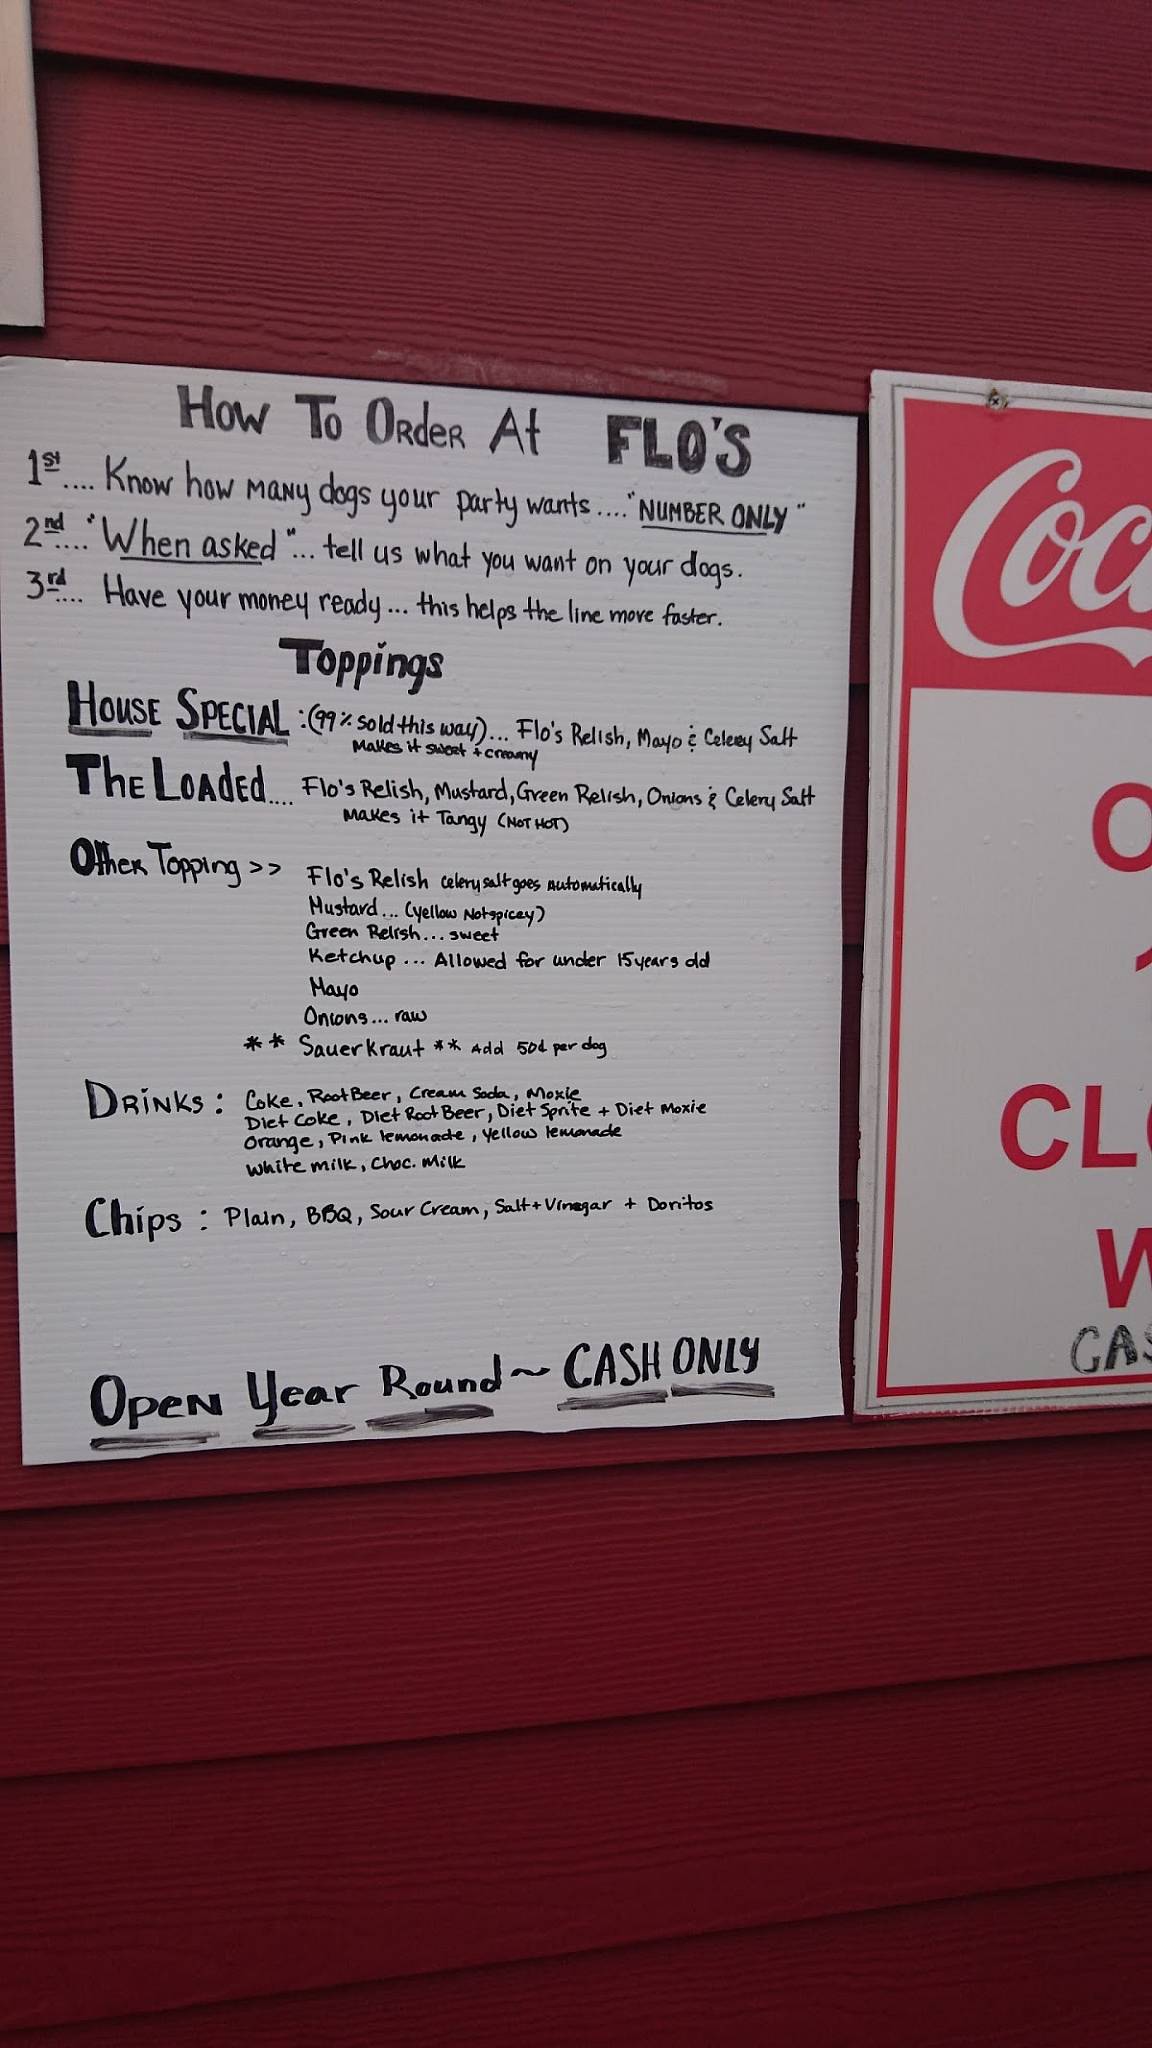 How To Order At FLO'S
1st.... Know how many dogs your party wants...."NUMBER ONLY"
2nd.... "When asked"... tell us what you want on your dogs.
3rd.... Have your money ready... this helps the line move faster.
Toppings
House Special :(99% sold this way)... Flo's Relish, Mayo & Celery Salt
Makes it sweet + creamy
The Loaded.... Flo's Relish, Mustard, Green Relish, Onions & Celery Salt
Makes it Tangy (NOT HOT)
Other Topping >> Flo's Relish celery salt goes Automatically
Mustard... (yellow Not spicey)
Green Relish... sweet
Ketchup ... Allowed for under 15 years old
Mayo
Onions... raw
** Sauerkraut ** Add 50¢ per dog
Drinks: Coke, Root Beer, Cream Soda, Moxie
Diet Coke, Diet Root Beer, Diet Sprite + Diet Moxie
Orange, Pink lemonade, yellow lemonade
White milk, Choc. Milk
Chips: Plain, BBQ, Sour Cream, Salt + Vinegar + Doritos
Open Year Round ~ CASH ONLY
Coc
O
CLO
W
CAS